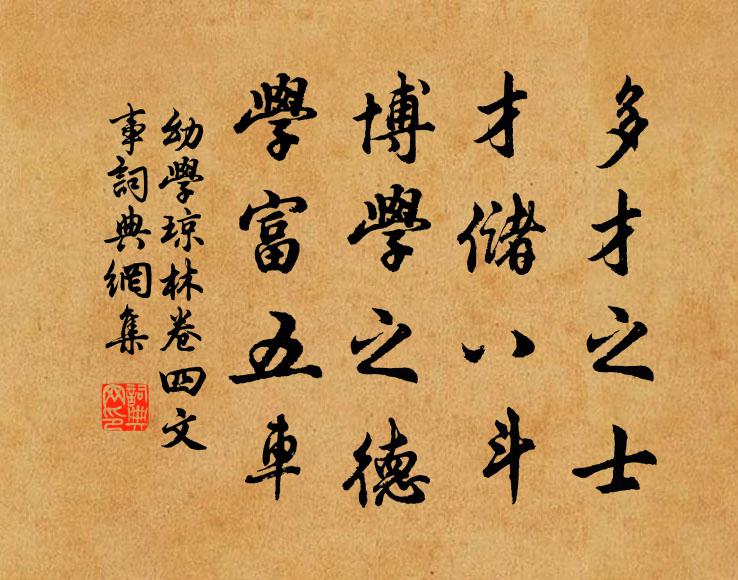 多才之士
才儲八斗
博學之德
學富五車
幼學琼林卷四文
事詞典網集
詞典网印